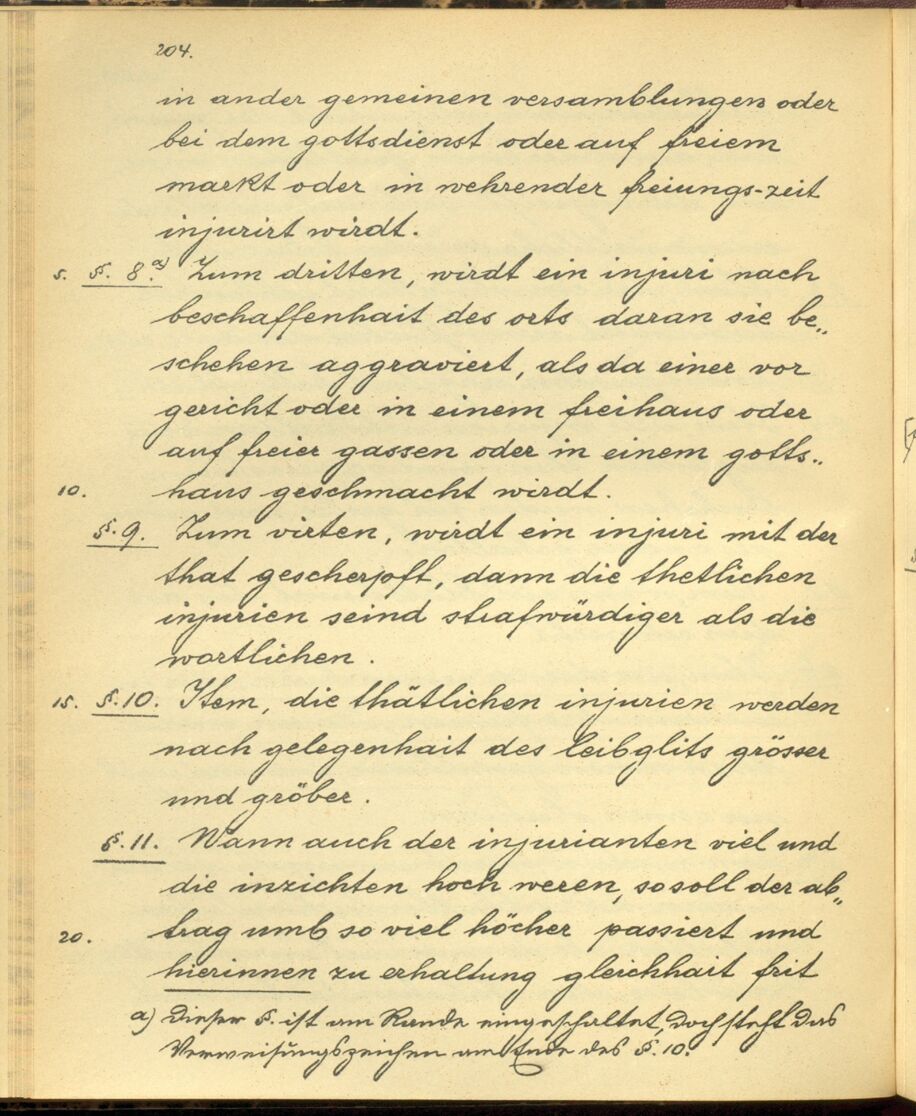 204.
in ander gemeinen versamblungen oder
bei dem gottsdienst oder auf freiem
markt oder in wehrender freiungs-zeit
injurirt wirdt.
5. §. 8.a) Zum dritten, wirdt ein injuri nach
beschaffenhait des orts daran sie be„
schehen aggraviert, als da einer vor
gericht oder in einem freihaus oder
auf freier gassen oder in einem gotts„
10. haus geschmacht wirdt.
§. 9. Zum virten, wirdt ein injuri mit der
that gescherpft, dann die thetlichen
injurien seind strafwürdiger als die
wortlichen.
15. §. 10. Item, die thätlichen injurien werden
nach gelegenhait des leibglits grösser
und gröber.
§. 11. Wann auch der injurianten viel und
die inzichten hoch weren, so soll der ab„
20. trag umb so viel höcher passiert und
hierinnen zu erhaltung gleichhait frit
a) Dieser §. ist am Rande eingeschaltet, doch steht das
Verweisungszeichen am Ende des §. 10.